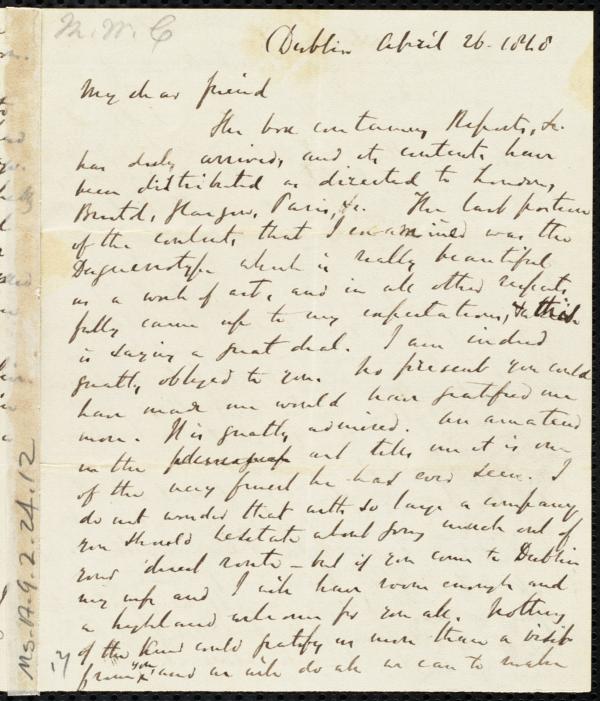 M. W. C
Dublin April 26. 1848
My dear friend
The box containing Reports, &c.
has duly arrived, and its contents have
been distributed as directed to London,
Bristol, Glasgow, Paris, &c. The last portion
of the contents that I examined was the
Daguerrotype which is really beautiful
as a work of art, and in all other respects
fully came up to my expectations, & this
is saying a great deal. I am indeed
greatly obliged to you. No present you could
have made me would have gratified me
more. It is greatly admired. An amateur
in the art tells me it is one
of the very finest he has ever seen. I
do not wonder that with so large a company
you should hesitate about going much out of
your direct route – but if you come to Dublin
my wife and I will have room enough and
a highland welcome for you all. Nothing
of the kind could gratify us more than a visit
from you, and we will do all we can to make
Ms. A. 9. 2. 24. 12